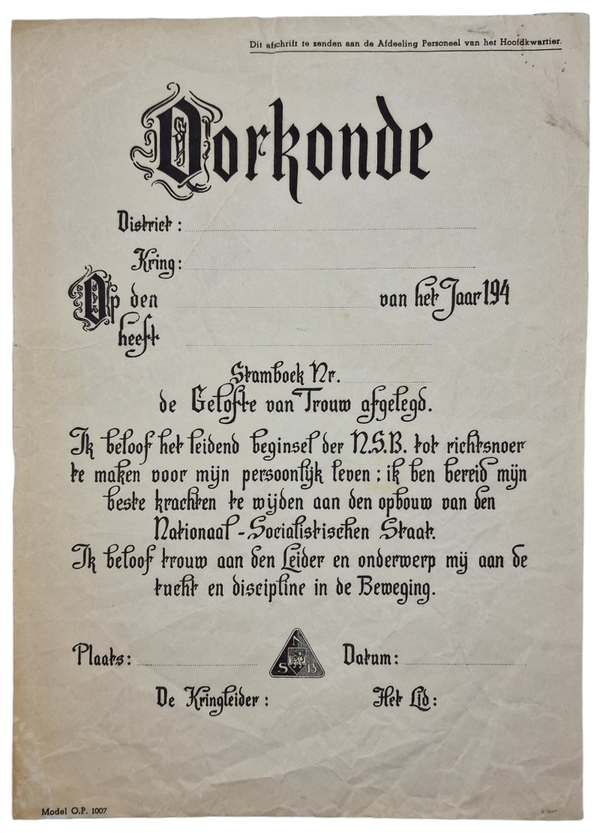 Dit afschrift te zenden aan de Afdeeling Personeel van het Hoofdkwartier.
Oorkonde
District:
Kring:
Op den van het Jaar 194
heeft
Stamboek Nr.
de Gelofte van Trouw afgelegd.
Ik beloof het leidend beginsel der N.S.B. tot richtsnoer
te maken voor mijn persoonlijk leven; ik ben bereid mijn
beste krachten te wijden aan den opbouw van den
Nationaal-Socialistischen Staat.
Ik beloof trouw aan den Leider en onderwerp mij aan de
tucht en discipline in de Beweging.
Plaats: Datum:
N
S B
De Kringleider: Het Lid:
Model O.P. 1007